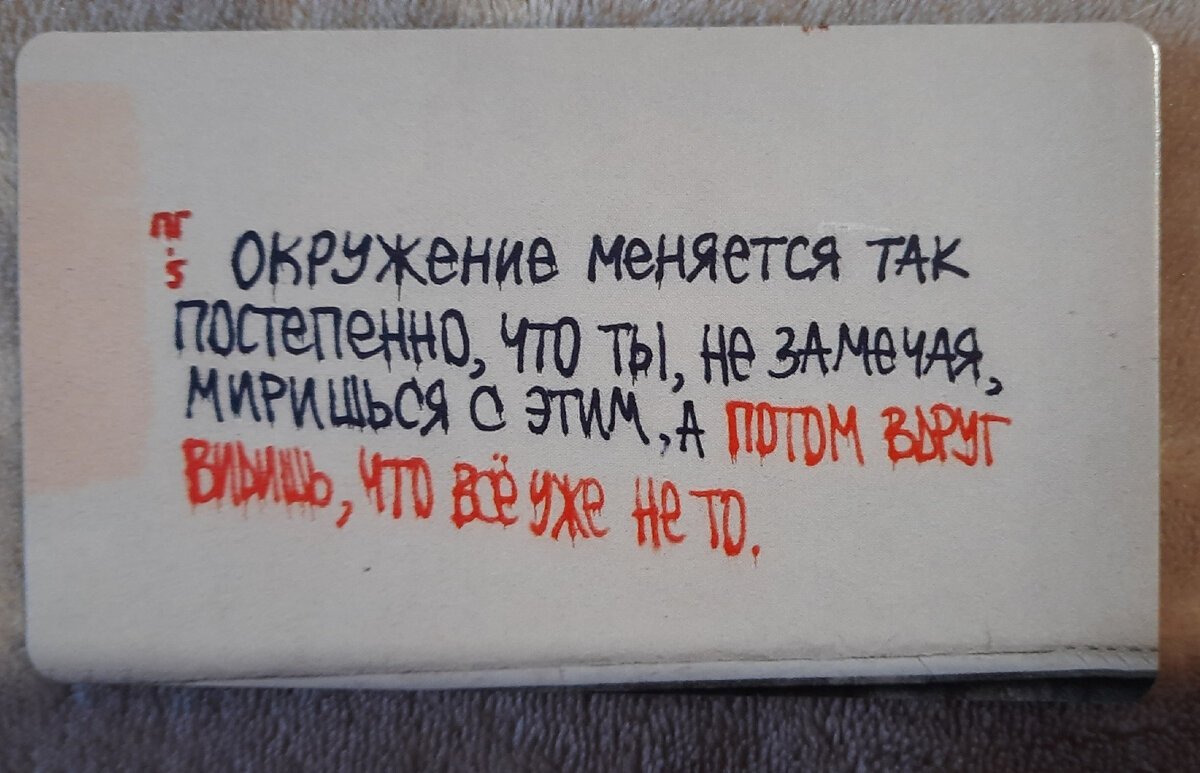 пг.s
Окружение меняется так
постепенно, что ты, не замечая,
миришься с этим, а потом вдруг
видишь, что всё уже не то.